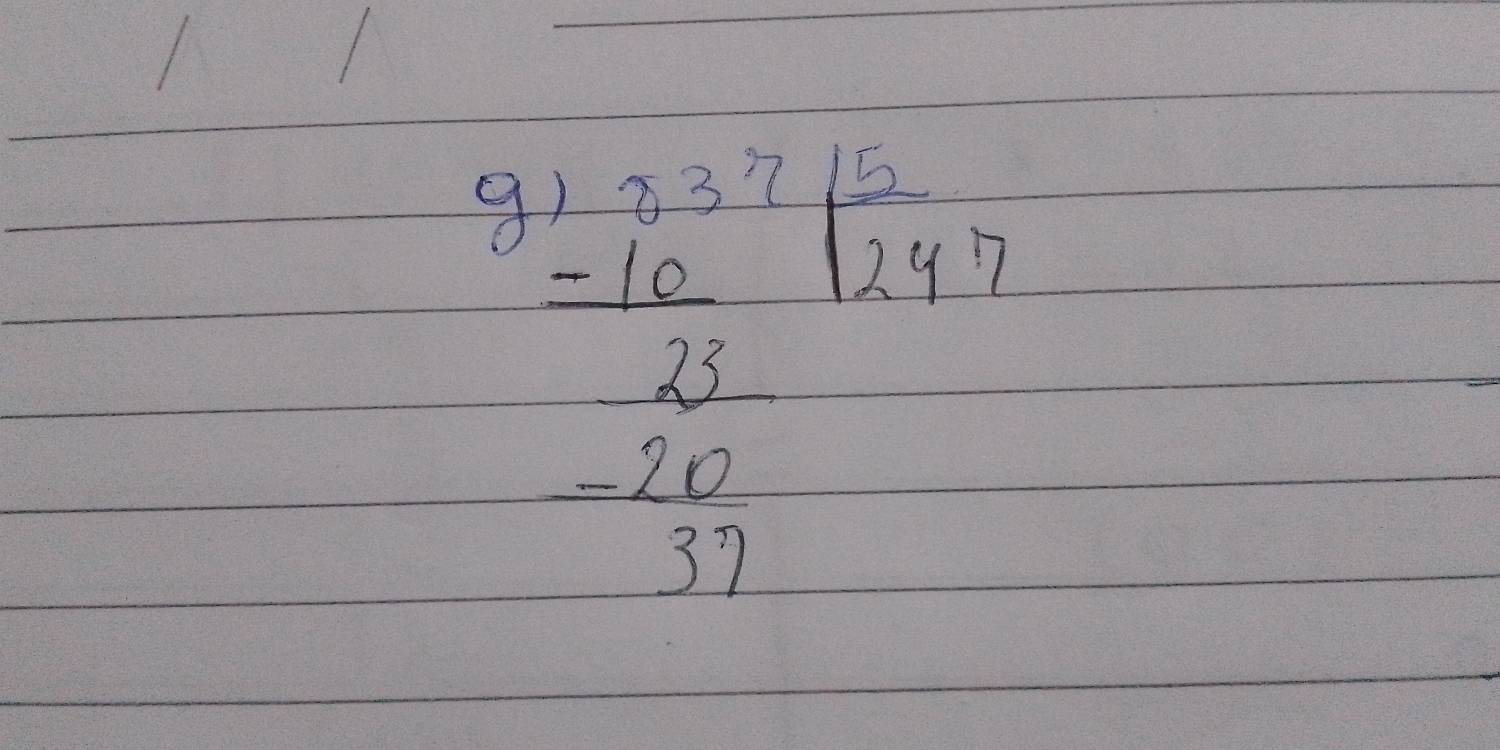 g) 837 5
-10 247
23
-20
37